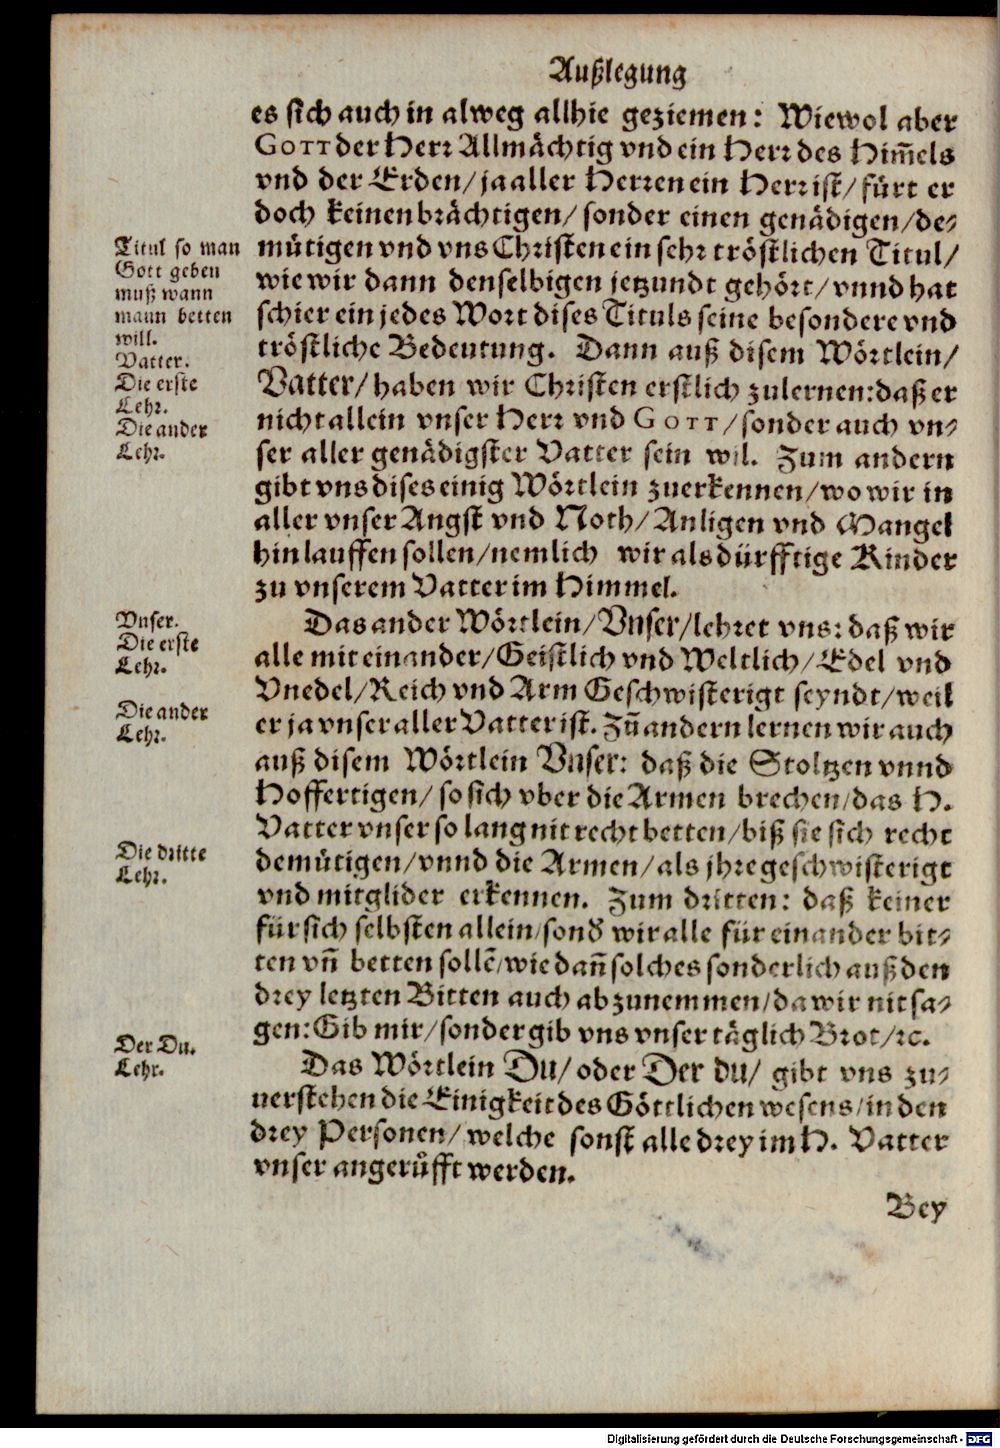 Außlegung
es sich auch in alweg allhie geziemen: Wiewol aber
GOTT der Herr Allmächtig vnd ein Herr des Him̄els
vnd der Erden/ ja aller Herren ein Herr ist/ fürt er
doch keinen brächtigen/ sonder einen genädigen/ de-
mütigen vnd vns Christen ein sehr tröstlichen Titul/
wie wir dann denselbigen jetzundt gehört/ vnnd hat
schier ein jedes Wort dises Tituls seine besondere vnd
tröstliche Bedeutung. Dann auß disem Wörtlein/
Vatter/ haben wir Christen erstlich zulernen: daß er
nicht allein vnser Herr vnd GOTT/ sonder auch vn-
ser aller genädigster Vatter sein wil. Zum andern
gibt vns dises einig Wörtlein zuerkennen/ wo wir in
aller vnser Angst vnd Noth/ Anligen vnd Mangel
hin lauffen sollen/ nemlich wir als dürfftige Kinder
zu vnserem Vatter im Himmel.
Titul so man
Gott geben
muß wann
mann betten
will.
Vatter.
Die erste
Lehr.
Die ander
Lehr.
Das ander Wörtlein/ Vnser/ lehret vns: daß wir
alle mit einander/ Geistlich vnd Weltlich/ Edel vnd
Vnedel/ Reich vnd Arm Geschwisterigt seyndt/ weil
er ja vnser aller Vatter ist. Zū andern lernen wir auch
auß disem Wörtlein Vnser: daß die Stoltzen vnnd
Hoffertigen/ so sich vber die Armen brechen/ das H.
Vatter vnser so lang nit recht betten/ biß sie sich recht
demütigen/ vnnd die Armen/ als jhre geschwisterigt
vnd mitglider erkennen. Zum dritten: daß keiner
für sich selbsten allein/ sond' wir alle für einander bit-
ten vn̄ betten sollē/ wie dan̄ solches sonderlich auß den
drey letzten Bitten auch abzunemmen/ da wir nit sa-
gen: Gib mir/ sonder gib vns vnser täglich Brot/ ꝛc.
Vnser.
Die erste
Lehr.
Die ander
Lehr.
Die dritte
Lehr.
Das Wörtlein Du/ oder Der du/ gibt vns zu-
uerstehen die Einigkeit des Göttlichen wesens/ in den
drey Personen/ welche sonst alle drey im H. Vatter
vnser angerůfft werden.
Der Du.
Lehr.
Bey
Digitalisierung gefördert durch die Deutsche Forschungsgemeinschaft - DFG